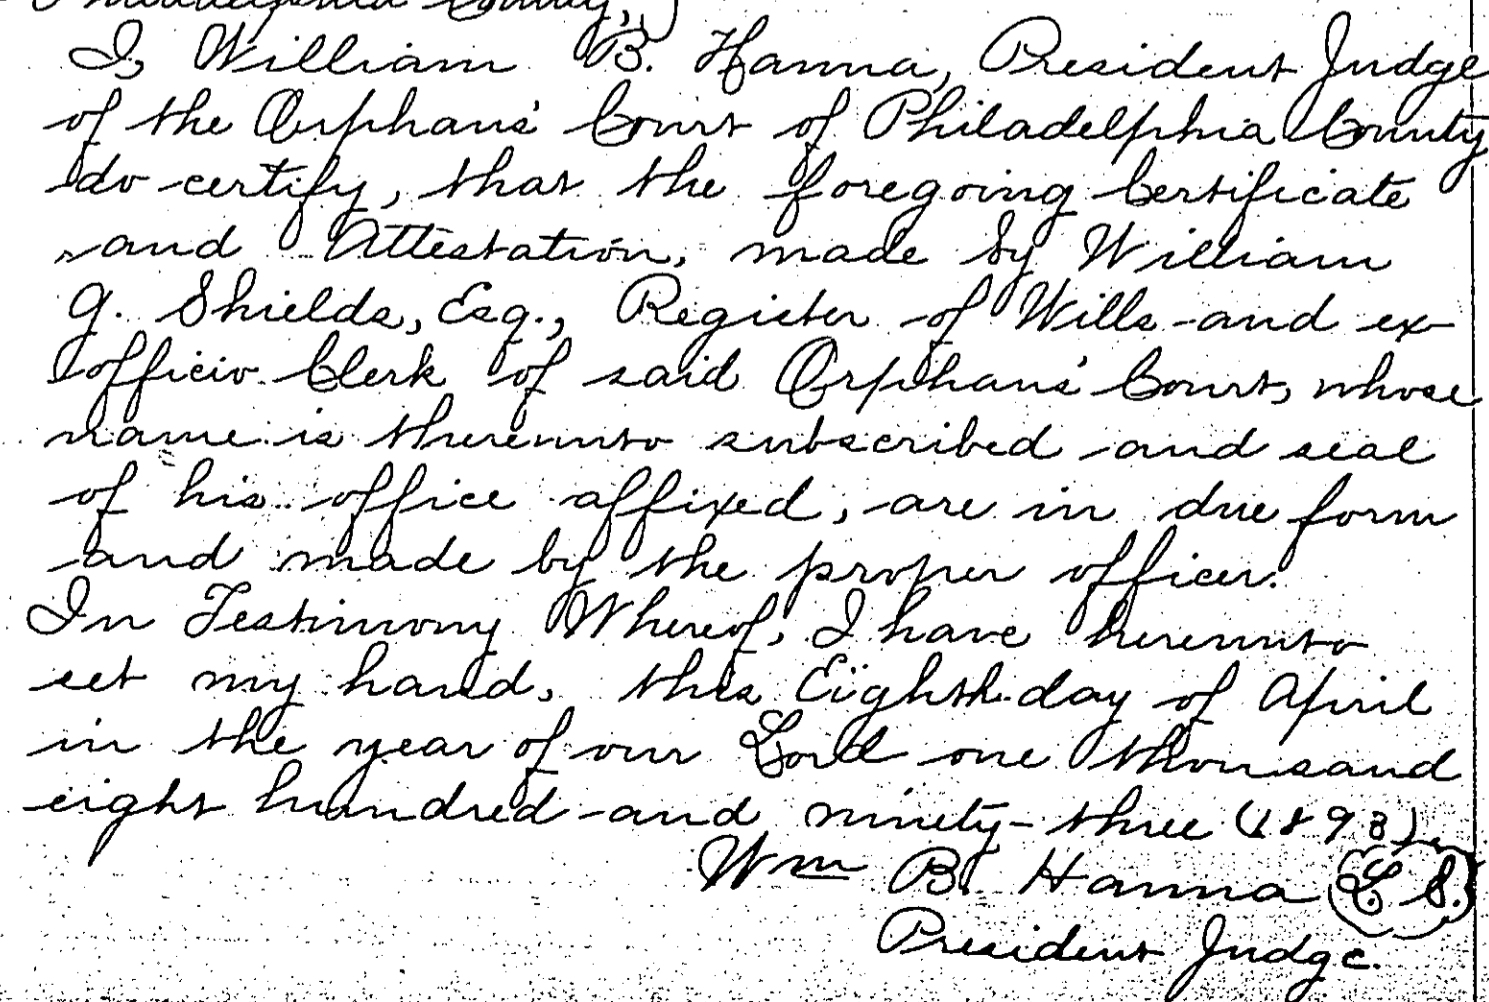 Philadelphia County,
I, William B. Hanna, President Judge
of the Orphans' Court of Philadelphia County
do certify, that the foregoing Certificate
and Attestation, made by William
G. Shields, Esq., Register of Wills and ex-
officio Clerk of said Orphans' Court, whose
name is thereunto subscribed and seal
of his office affixed, are in due form
and made by the proper officer.
In Testimony Whereof, I have hereunto
set my hand, this Eighth day of April
in the year of our Lord one thousand
eight hundred and ninety-three (1893).
Wm B. Hanna L. S.
President Judge.